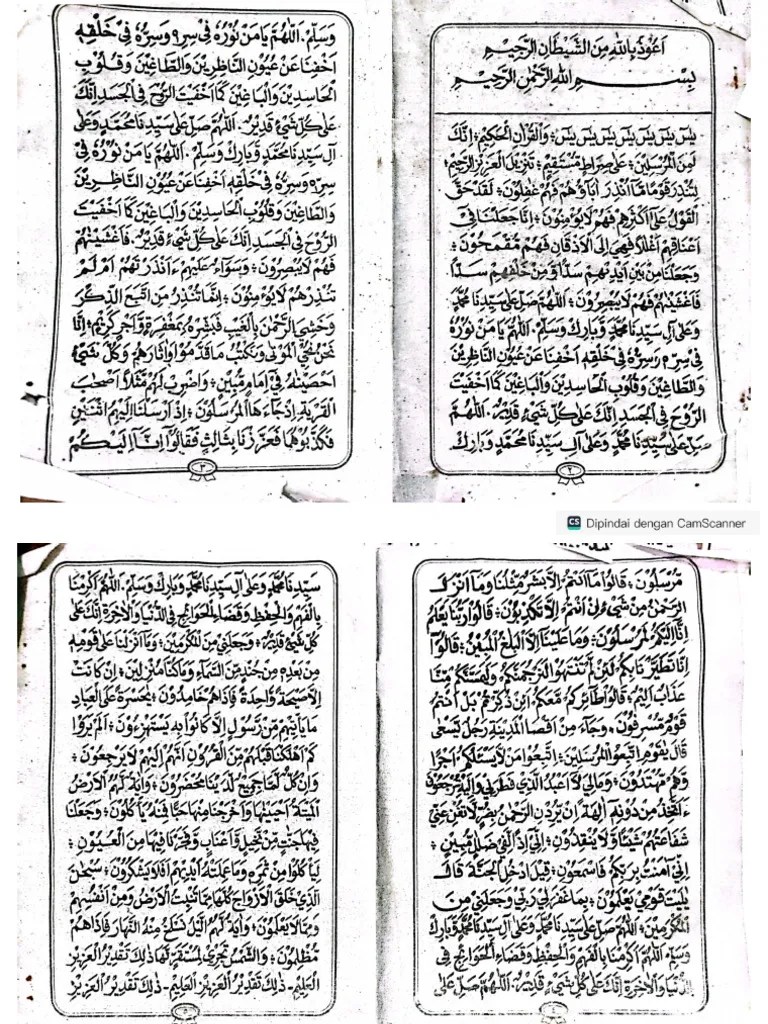 اَعُوْذُ بِاللهِ مِنَ الشَّيْطَانِ الرَّجِيْمِ
بِسْمِ اللهِ الرَّحْمٰنِ الرَّحِيْمِ
يٰسۤ يٰسۤ يٰسۤ يٰسۤ يٰسۤ يٰسۤ يٰسۤ؛ وَالْقُرْاٰنِ الْحَكِيْمِ؛ اِنَّكَ
لَمِنَ الْمُرْسَلِيْنَ؛ عَلٰى صِرَاطٍ مُسْتَقِيْمٍ؛ تَنْزِيْلَ الْعَزِيْزِ الرَّحِيْمِ؛
لِتُنْذِرَ قَوْمًا مَّا اُنْذِرَ اٰبَاؤُهُمْ فَهُمْ غٰفِلُوْنَ؛ لَقَدْ حَقَّ
الْقَوْلُ عَلٰى اَكْثَرِهِمْ فَهُمْ لَا يُؤْمِنُوْنَ؛ اِنَّا جَعَلْنَا فِيْ
اَعْنَاقِهِمْ اَغْلٰلًا فَهِيَ اِلَى الْاَذْقَانِ فَهُمْ مُقْمَحُوْنَ؛
وَجَعَلْنَا مِنْ بَيْنِ اَيْدِيْهِمْ سَدًّا وَّمِنْ خَلْفِهِمْ سَدًّا
فَاَغْشَيْنٰهُمْ فَهُمْ لَا يُبْصِرُوْنَ؛ اَللّٰهُمَّ صَلِّ عَلٰى سَيِّدِنَا مُحَمَّدٍ
وَعَلٰى اٰلِ سَيِّدِنَا مُحَمَّدٍ وَّبَارِكْ وَسَلِّمْ. اَللّٰهُمَّ يَا مَنْ نُوْرُهُ
فِيْ سِرِّهِ وَسِرُّهُ فِيْ خَلْقِهِ اَخْفِنَا عَنْ عُيُوْنِ النَّاظِرِيْنَ
وَالطَّاغِيْنَ وَقُلُوْبِ الْحَاسِدِيْنَ وَالْبَاغِيْنَ كَمَا اَخْفَيْتَ
الرُّوْحَ فِي الْجَسَدِ اِنَّكَ عَلٰى كُلِّ شَيْءٍ قَدِيْرٌ. اَللّٰهُمَّ
صَلِّ عَلٰى سَيِّدِنَا مُحَمَّدٍ وَّعَلٰى اٰلِ سَيِّدِنَا مُحَمَّدٍ وَّبَارِكْ
٢
وَسَلِّمْ. اَللّٰهُمَّ يَا مَنْ نُوْرُهُ فِيْ سِرِّهِ وَسِرُّهُ فِيْ خَلْقِهِ
اَخْفِنَا عَنْ عُيُوْنِ النَّاظِرِيْنَ وَالطَّاغِيْنَ وَقُلُوْبِ
الْحَاسِدِيْنَ وَالْبَاغِيْنَ كَمَا اَخْفَيْتَ الرُّوْحَ فِي الْجَسَدِ اِنَّكَ
عَلٰى كُلِّ شَيْءٍ قَدِيْرٌ. اَللّٰهُمَّ صَلِّ عَلٰى سَيِّدِنَا مُحَمَّدٍ وَّعَلٰى
اٰلِ سَيِّدِنَا مُحَمَّدٍ وَّبَارِكْ وَسَلِّمْ. اَللّٰهُمَّ يَا مَنْ نُوْرُهُ فِيْ
سِرِّهِ وَسِرُّهُ فِيْ خَلْقِهِ اَخْفِنَا عَنْ عُيُوْنِ النَّاظِرِيْنَ
وَالطَّاغِيْنَ وَقُلُوْبِ الْحَاسِدِيْنَ وَالْبَاغِيْنَ كَمَا اَخْفَيْتَ
الرُّوْحَ فِي الْجَسَدِ اِنَّكَ عَلٰى كُلِّ شَيْءٍ قَدِيْرٌ. فَاَغْشَيْنٰهُمْ
فَهُمْ لَا يُبْصِرُوْنَ؛ وَسَوَاءٌ عَلَيْهِمْ ءَاَنْذَرْتَهُمْ اَمْ لَمْ
تُنْذِرْهُمْ لَا يُؤْمِنُوْنَ؛ اِنَّمَا تُنْذِرُ مَنِ اتَّبَعَ الذِّكْرَ
وَخَشِيَ الرَّحْمٰنَ بِالْغَيْبِ فَبَشِّرْهُ بِمَغْفِرَةٍ وَّاَجْرٍ كَرِيْمٍ؛ اِنَّا
نَحْنُ نُحْيِ الْمَوْتٰى وَنَكْتُبُ مَا قَدَّمُوْا وَاٰثَارَهُمْ وَكُلَّ شَيْءٍ
اَحْصَيْنٰهُ فِيْ اِمَامٍ مُّبِيْنٍ؛ وَاضْرِبْ لَهُمْ مَثَلًا اَصْحٰبَ
الْقَرْيَةِ اِذْ جَاءَهَا الْمُرْسَلُوْنَ؛ اِذْ اَرْسَلْنَا اِلَيْهِمُ اثْنَيْنِ
فَكَذَّبُوْهُمَا فَعَزَّزْنَا بِثَالِثٍ فَقَالُوْا اِنَّا اِلَيْكُمْ
٣
Dipindai dengan CamScanner
مُرْسَلُوْنَ؛ قَالُوْا مَا اَنْتُمْ اِلَّا بَشَرٌ مِثْلُنَا وَمَا اَنْزَلَ
الرَّحْمٰنُ مِنْ شَيْءٍ اِنْ اَنْتُمْ اِلَّا تَكْذِبُوْنَ؛ قَالُوْا رَبُّنَا يَعْلَمُ
اِنَّا اِلَيْكُمْ لَمُرْسَلُوْنَ؛ وَمَا عَلَيْنَا اِلَّا الْبَلٰغُ الْمُبِيْنُ؛ قَالُوْا
اِنَّا تَطَيَّرْنَا بِكُمْ لَئِنْ لَمْ تَنْتَهُوْا لَنَرْجُمَنَّكُمْ وَلَيَمَسَّنَّكُمْ مِنَّا
عَذَابٌ اَلِيْمٌ؛ قَالُوْا طَائِرُكُمْ مَعَكُمْ اَئِنْ ذُكِّرْتُمْ بَلْ اَنْتُمْ
قَوْمٌ مُسْرِفُوْنَ. وَجَاءَ مِنْ اَقْصَا الْمَدِيْنَةِ رَجُلٌ يَسْعٰى
قَالَ يٰقَوْمِ اتَّبِعُوا الْمُرْسَلِيْنَ؛ اِتَّبِعُوْا مَنْ لَا يَسْئَلُكُمْ اَجْرًا
وَهُمْ مُهْتَدُوْنَ؛ وَمَا لِيَ لَا اَعْبُدُ الَّذِيْ فَطَرَنِيْ وَاِلَيْهِ تُرْجَعُوْنَ
ءَاَتَّخِذُ مِنْ دُوْنِهِ اٰلِهَةً اِنْ يُرِدْنِ الرَّحْمٰنُ بِضُرٍّ لَا تُغْنِ عَنِّيْ
شَفَاعَتُهُمْ شَيْئًا وَّلَا يُنْقِذُوْنِ؛ اِنِّيْ اِذًا لَّفِيْ ضَلٰلٍ مُّبِيْنٍ؛
اِنِّيْ اٰمَنْتُ بِرَبِّكُمْ فَاسْمَعُوْنِ؛ قِيْلَ ادْخُلِ الْجَنَّةَ قَالَ
يٰلَيْتَ قَوْمِيْ يَعْلَمُوْنَ؛ بِمَا غَفَرَ لِيْ رَبِّيْ وَجَعَلَنِيْ مِنَ
الْمُكْرَمِيْنَ؛ اَللّٰهُمَّ صَلِّ عَلٰى سَيِّدِنَا مُحَمَّدٍ وَّعَلٰى اٰلِ سَيِّدِنَا مُحَمَّدٍ وَّبَارِكْ
وَسَلِّمْ. اَللّٰهُمَّ اَكْرِمْنَا بِالْفَهْمِ وَالْحِفْظِ وَقَضَاءِ الْحَوَائِجِ فِي
الدُّنْيَا وَالْاٰخِرَةِ اِنَّكَ عَلٰى كُلِّ شَيْءٍ قَدِيْرٌ. اَللّٰهُمَّ صَلِّ عَلٰى
٤
سَيِّدِنَا مُحَمَّدٍ وَّعَلٰى اٰلِ سَيِّدِنَا مُحَمَّدٍ وَّبَارِكْ وَسَلِّمْ. اَللّٰهُمَّ اَكْرِمْنَا
بِالْفَهْمِ وَالْحِفْظِ وَقَضَاءِ الْحَوَائِجِ فِي الدُّنْيَا وَالْاٰخِرَةِ اِنَّكَ عَلٰى
كُلِّ شَيْءٍ قَدِيْرٌ؛ وَجَعَلَنِيْ مِنَ الْمُكْرَمِيْنَ؛ وَمَا اَنْزَلْنَا عَلٰى قَوْمِهِ
مِنْ بَعْدِهِ مِنْ جُنْدٍ مِّنَ السَّمَاءِ وَمَا كُنَّا مُنْزِلِيْنَ؛ اِنْ كَانَتْ
اِلَّا صَيْحَةً وَّاحِدَةً فَاِذَا هُمْ خَامِدُوْنَ؛ يٰحَسْرَةً عَلَى الْعِبَادِ
مَا يَأْتِيْهِمْ مِّنْ رَّسُوْلٍ اِلَّا كَانُوْا بِهِ يَسْتَهْزِءُوْنَ؛ اَلَمْ يَرَوْا
كَمْ اَهْلَكْنَا قَبْلَهُمْ مِنَ الْقُرُوْنِ اَنَّهُمْ اِلَيْهِمْ لَا يَرْجِعُوْنَ؛
وَاِنْ كُلٌّ لَّمَّا جَمِيْعٌ لَّدَيْنَا مُحْضَرُوْنَ؛ وَاٰيَةٌ لَّهُمُ الْاَرْضُ
الْمَيْتَةُ اَحْيَيْنٰهَا وَاَخْرَجْنَا مِنْهَا حَبًّا فَمِنْهُ يَأْكُلُوْنَ؛ وَجَعَلْنَا
فِيْهَا جَنّٰتٍ مِّنْ نَّخِيْلٍ وَّاَعْنَابٍ وَّفَجَّرْنَا فِيْهَا مِنَ الْعُيُوْنِ؛
لِيَأْكُلُوْا مِنْ ثَمَرِهِ وَمَا عَمِلَتْهُ اَيْدِيْهِمْ اَفَلَا يَشْكُرُوْنَ؛ سُبْحٰنَ
الَّذِيْ خَلَقَ الْاَزْوَاجَ كُلَّهَا مِمَّا تُنْبِتُ الْاَرْضُ وَمِنْ اَنْفُسِهِمْ
وَمِمَّا لَا يَعْلَمُوْنَ؛ وَاٰيَةٌ لَّهُمُ الَّيْلُ نَسْلَخُ مِنْهُ النَّهَارَ فَاِذَا هُمْ
مُظْلِمُوْنَ؛ وَالشَّمْسُ تَجْرِيْ لِمُسْتَقَرٍّ لَّهَا ذٰلِكَ تَقْدِيْرُ الْعَزِيْزِ
الْعَلِيْمِ- ذٰلِكَ تَقْدِيْرُ الْعَزِيْزِ الْعَلِيْمِ- ذٰلِكَ تَقْدِيْرُ الْعَزِيْزِ
٥